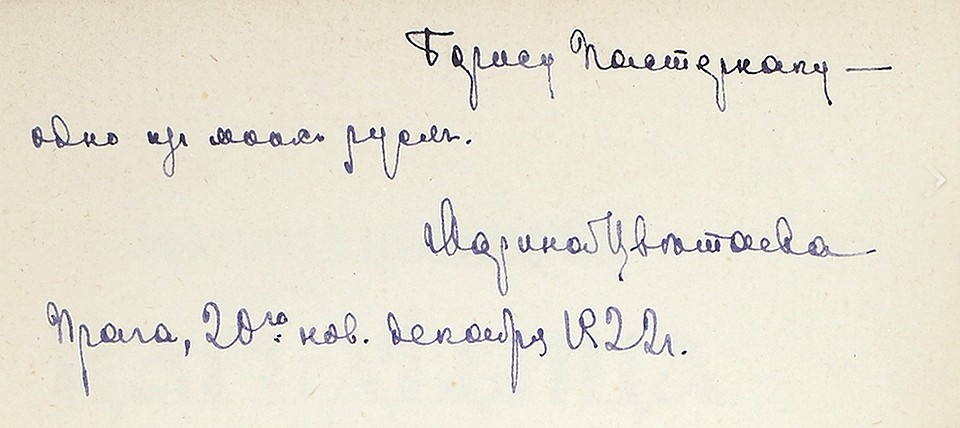 Борису Пастернаку —
одно изъ моихъ руслъ.
Марина Цвѣтаева
Прага, 20го нов. декабря 1922г.